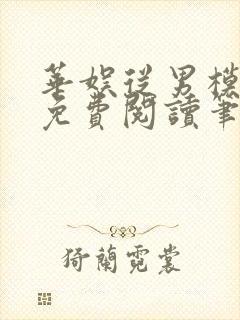 華娛從男模
免費閱讀筆
猗蘭霓裳